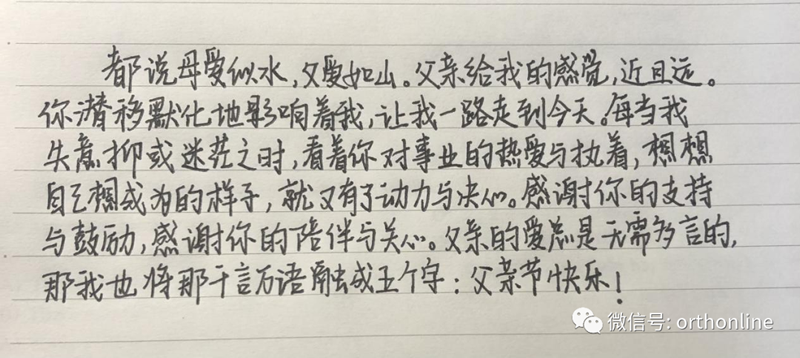 都说母爱似水，父爱如山。父亲给我的感觉，近且远。
你潜移默化地影响着我，让我一路走到今天。每当我
失意抑或迷茫之时，看着你对事业的热爱与执着，想想
自己想成为的样子，就又有了动力与决心。感谢你的支持
与鼓励，感谢你的陪伴与关心。父亲的爱总是无需多言的，
那我也将那千言万语融成五个字：父亲节快乐！
微信号: orthonline